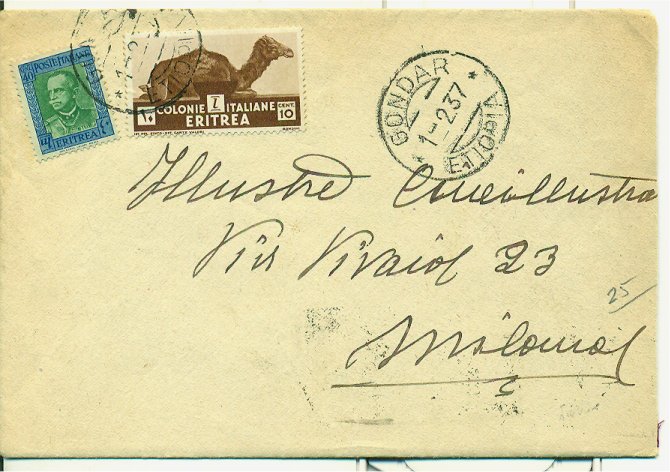 POSTE ITALIANE
ERITREA
COLONIE ITALIANE
ERITREA
CENT. 10
GONDAR
1-2.37
ETIOPIA
Illustre
Via Vivaio 23
Milano
25